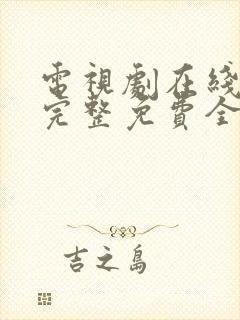 電視劇在綫
完整免費全
吉之島